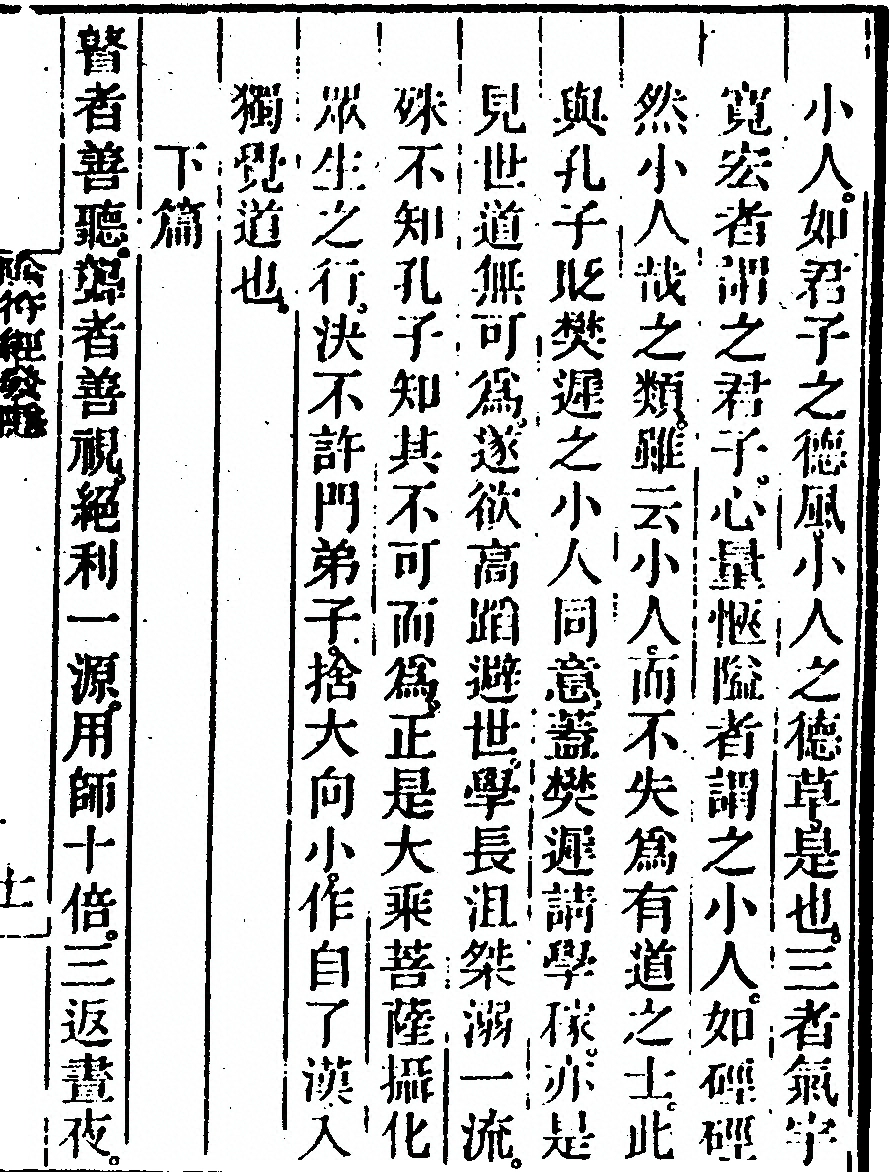 小人。如君子之德風。小人之德草。是也。三者氣宇
寬宏者謂之君子。心量愜隘者謂之小人。如硜硜
然小人哉之類。雖云小人。而不失為有道之士。此
與孔子貶樊遲之小人同意。蓋樊遲請學稼。亦是
見世道無可為。遂欲高蹈避世。學長沮桀溺一流。
殊不知孔子知其不可而為。正是大乘菩薩攝化
眾生之行。決不許門弟子。捨大向小。作自了漢入
獨覺道也。
下篇
瞽者善聽。聾者善視。絕利一源。用師十倍。三返晝夜。
陰符經發隱
十一